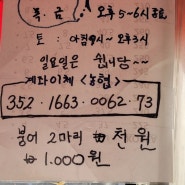 목.금 오후5~6시종료
토: 아침9시~ 오후3시
일요일은 쉽니당~~
계좌이체 <농협>
352·1663·0062·73
붕어 2마리 ₩ 천원
₩ 1.000원